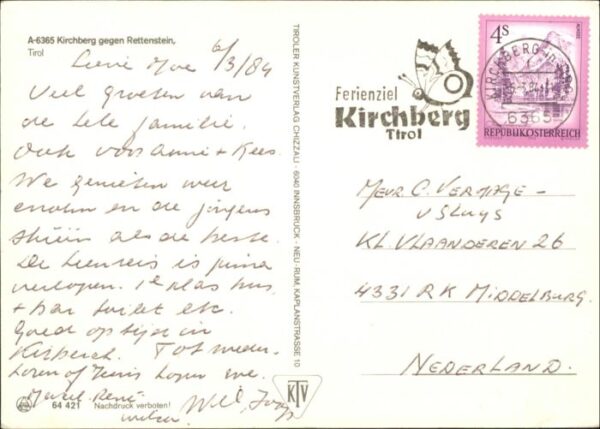 A-6365 Kirchberg gegen Rettenstein,
Tirol
6/3/84
Lieve
Veel groeten van
de hele familie.
Ook voor Annie + Kees.
We genieten weer
enorm en de jongens
skiën als de beste.
De heenreis is prima
verlopen. 1e klas bus
+ bar toilet etc.
Goed op tijd in
Kirchberg. Tot weder-
horen of
Marcel René
64 421 Nachdruck verboten!
TIROLER KUNSTVERLAG CHIZZALI · 6040 INNSBRUCK - NEU-RUM, KAPLANSTRASSE 10
KTV
Ferienziel
Kirchberg
Tirol
4s
REPUBLIK ÖSTERREICH
KIRCHBERG IN
6365
Mevr. C. Vermage -
v Sluys
Kl. Vlaanderen 26
4331 RK Middelburg.
Nederland.